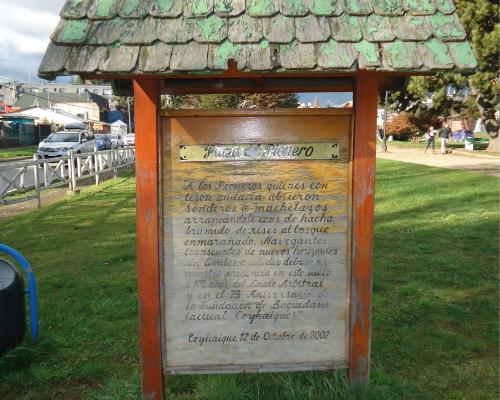 Plaza El Pionero
"A los Pioneros quienes con
tesón y audacia abrieron
senderos a machetazos
arrancándole ecos de hacha,
bramido de reses al bosque
enmarañado. Navegantes
transeúntes de nuevos horizontes
sin límites a ustedes debemos
nuestra presencia en este suelo
a 100 años del Laudo Arbitral
y en el 73 Aniversario de
la Fundación de Baquedano
(actual Coyhaique)."
Coyhaique 12 de Octubre de 2002